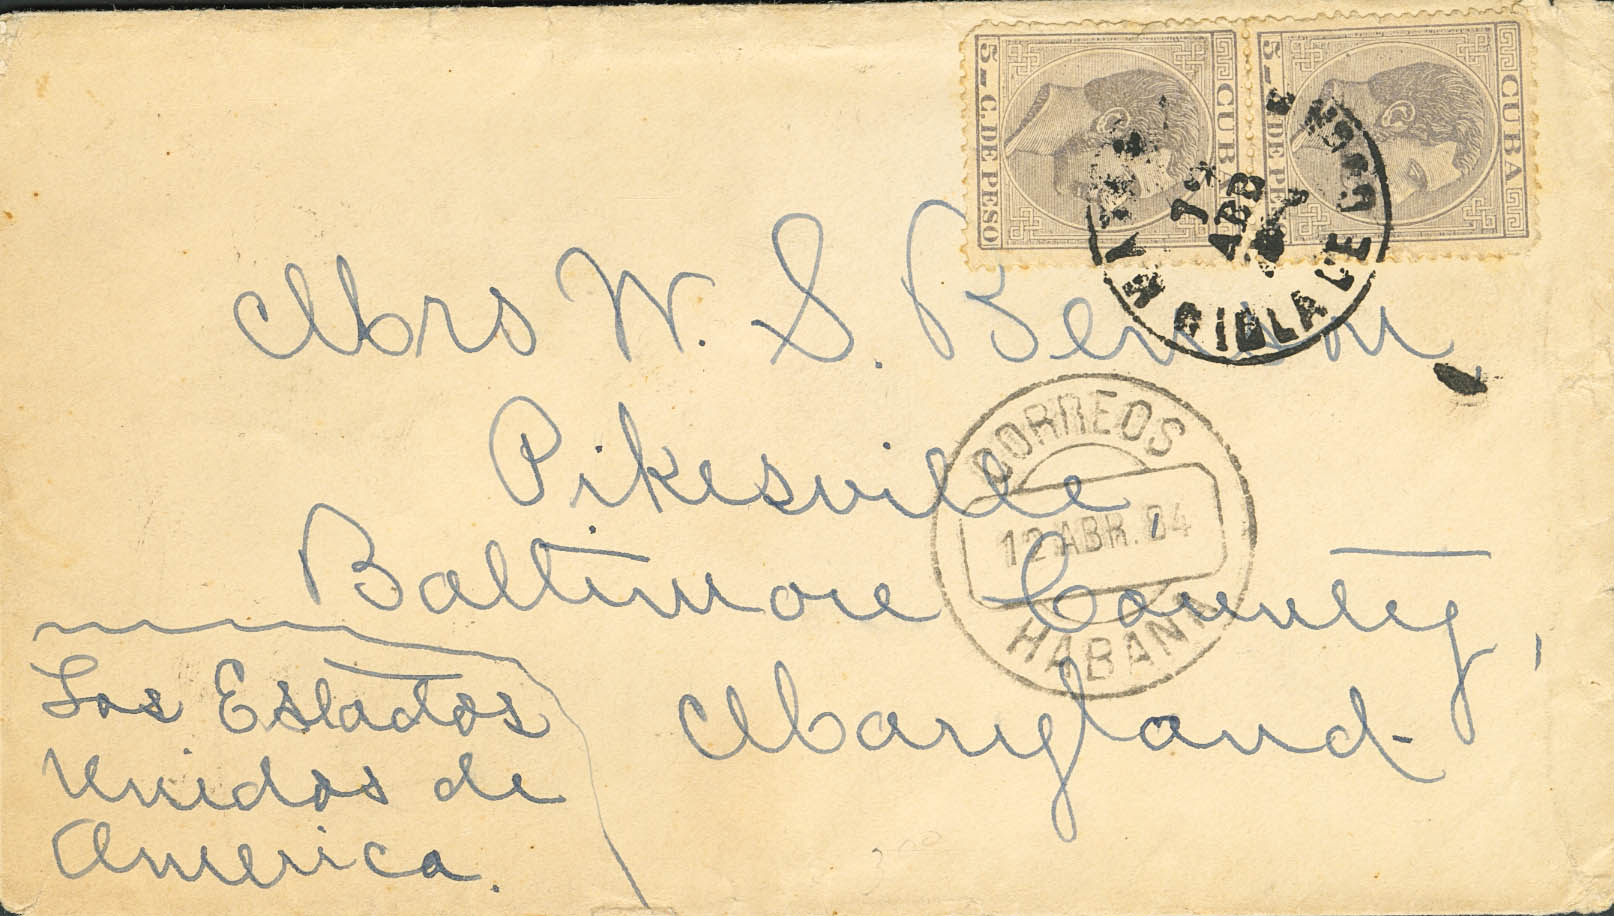 5 - C. DE PESO
CUBA
5 - DE
CUBA
12
ABR
Mrs W. S. Benson,
Pikesville,
Baltimore County,
Maryland-
CORREOS
12 ABR. 84
HABANA
Los Estados
Unidos de
America.